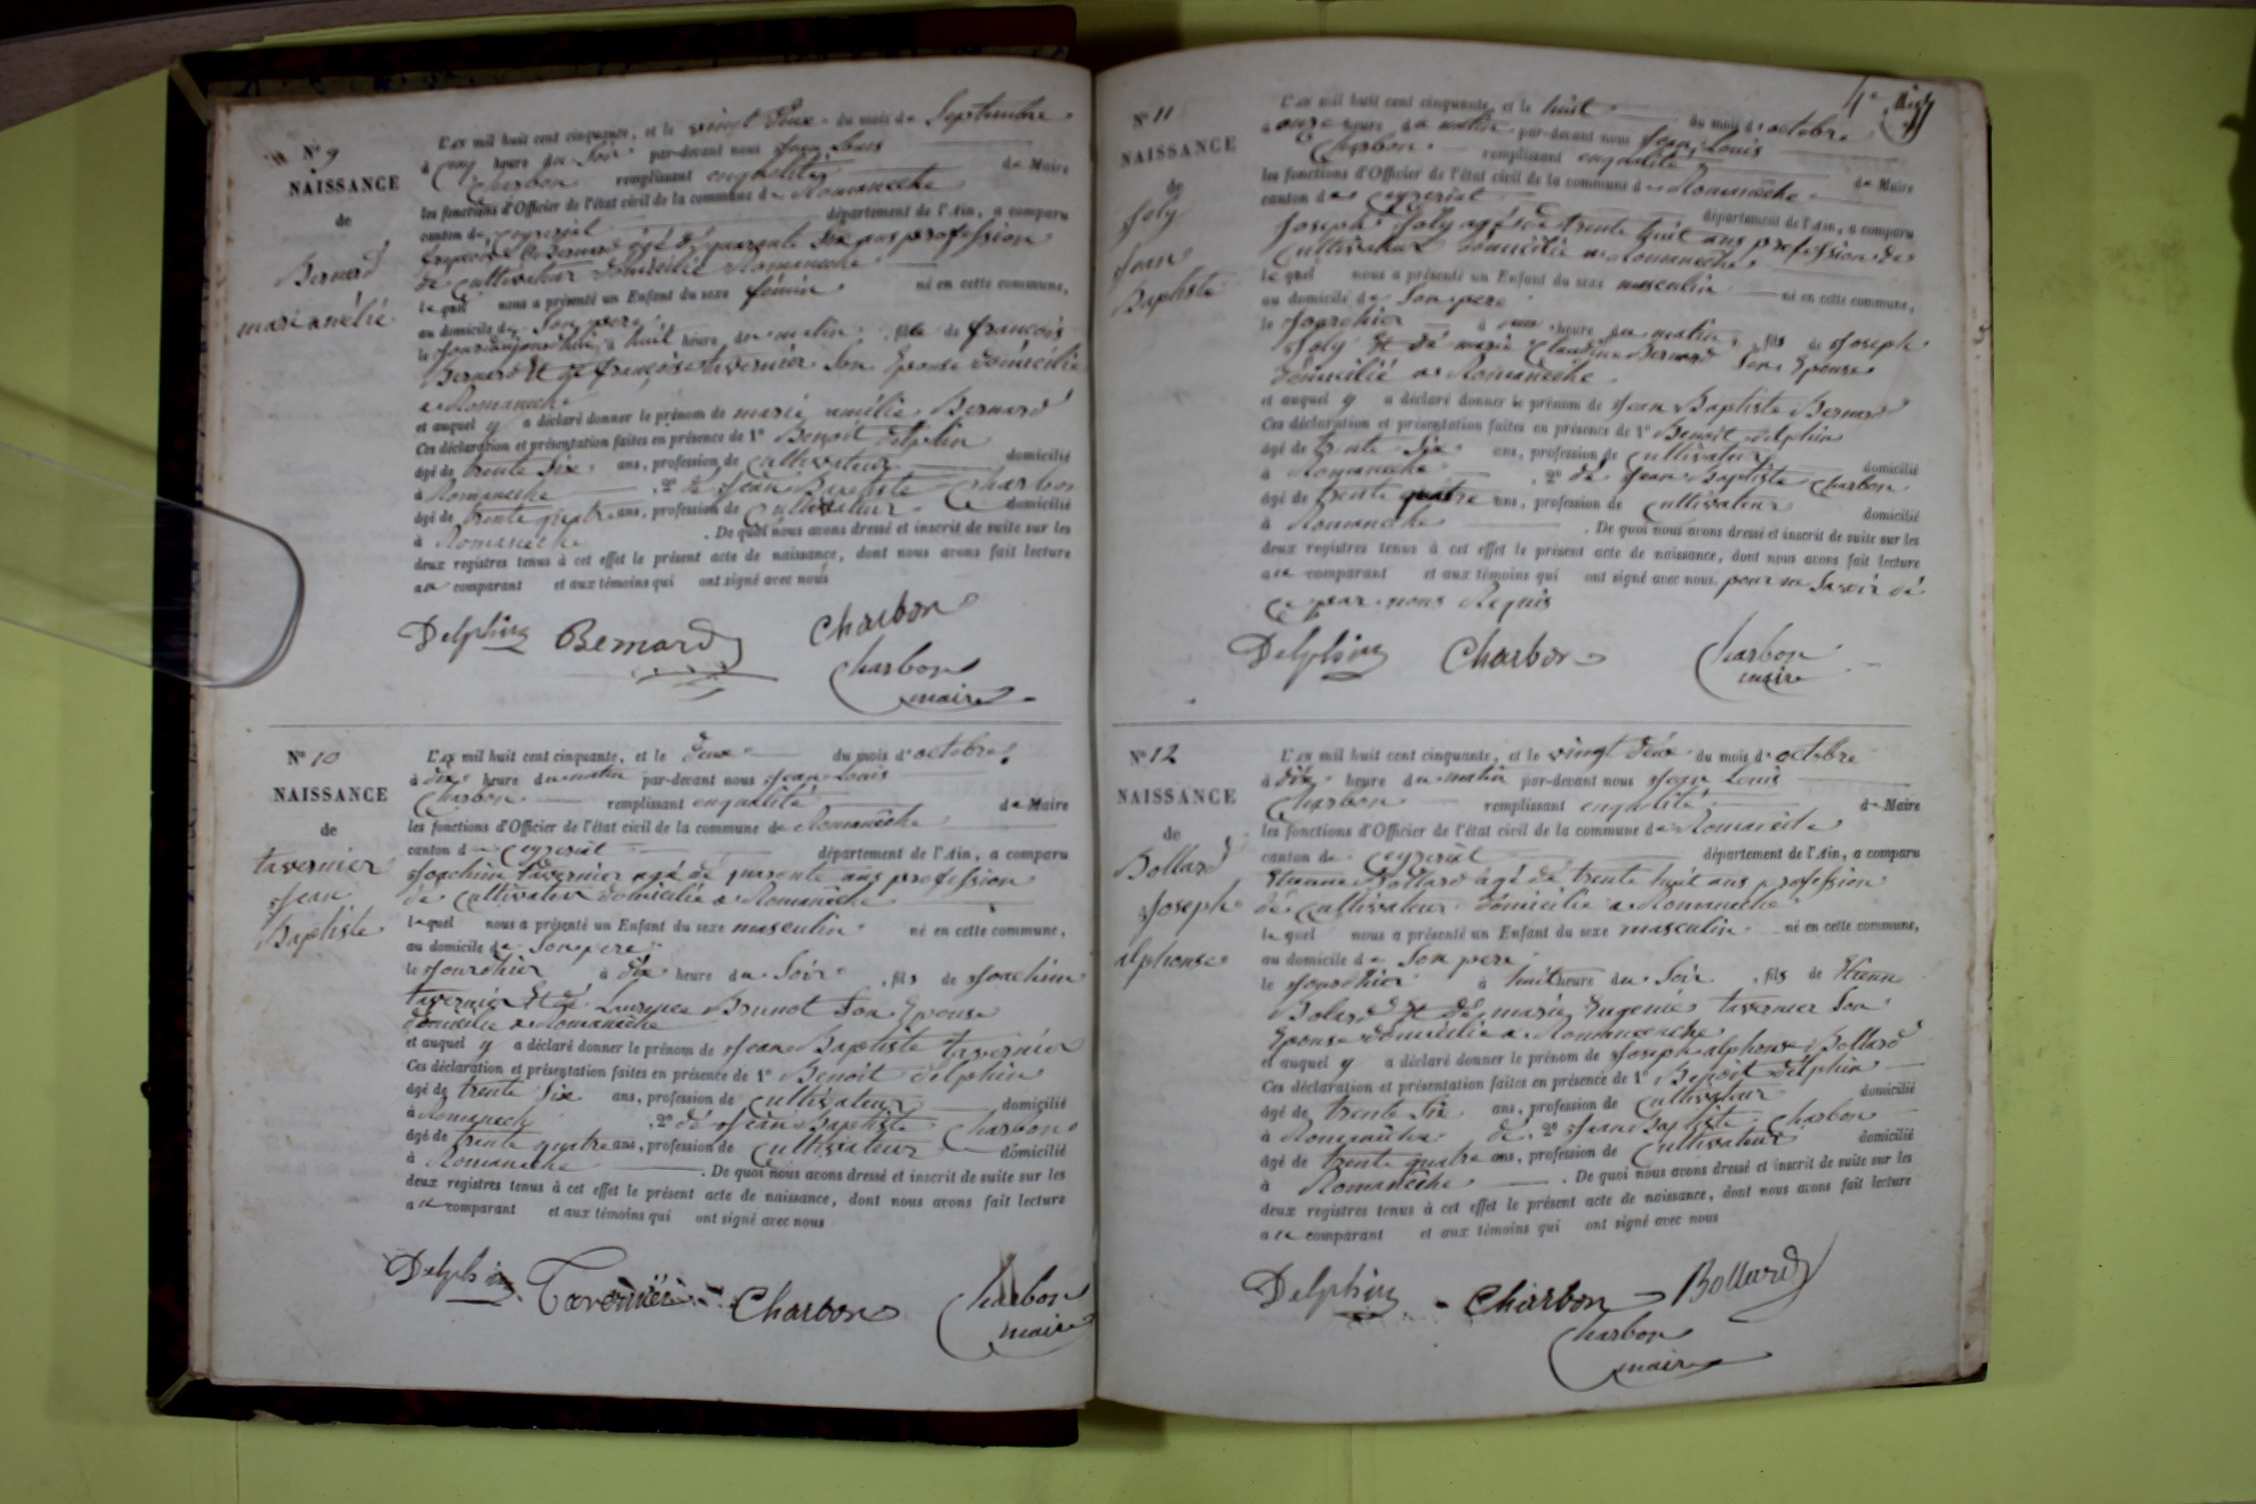 N° 9
NAISSANCE
de
Bernard
marie amélie
L'an mil huit cent cinquante, et le vingt deux du mois de Septembre
à cinq heure du Soir par-devant nous Jean Louis
Charbon remplissant enqualité de Maire
les fonctions d'Officier de l'état civil de la commune de Romanèche
canton de Ceyzeriat département de l'Ain, a comparu
françois Bernard âgé dé quarante Six ans profession
de Cultivateur domicilié a Romaneche
lequel nous a présenté un Enfant du sexe féminin né en cette commune,
au domicile de Son pere
le Jourdaujourdhui à huit heure du matin, fille de françois
Bernard Et de françoise tavernier Son Epouse domicilié
a Romaneche
et auquel y a déclaré donner le prénom de marie amélie Bernard
Ces déclaration et présentation faites en présence de 1° Benoit delphin
âgé de trente Six ans, profession de Cultivateur domicilié
à Romaneche , 2° de Jean Baptiste Charbon
âgé de trente quatre ans, profession de Cultivateur domicilié
à Romaneche . De quoi nous avons dressé et inscrit de suite sur les
deux registres tenus à cet effet le présent acte de naissance, dont nous avons fait lecture
au comparant et aux témoins qui ont signé avec nous
Delphin Bernard Charbon
Charbon
maire
N° 10
NAISSANCE
de
tavernier
Jean
Baptiste
L'an mil huit cent cinquante, et le deux du mois d'octobre
à dix heure du matin par-devant nous Jean Louis
Charbon remplissant enqualité de Maire
les fonctions d'Officier de l'état civil de la commune de Romanèche
canton de Ceyzeriat département de l'Ain, a comparu
Joachim tavernier agé dé quarante ans profession
de Cultivateur domicilié a Romanèche
lequel nous a présenté un Enfant du sexe masculin né en cette commune,
au domicile de Son pere
le Jourdhier à dix heure du Soir, fils de Joachim
tavernier Et dé Laurence Brunot Son Epouse
domicilié a Romanèche
et auquel y a déclaré donner le prénom de Jean Baptiste tavernier
Ces déclaration et présentation faites en présence de 1° Benoit delphin
âgé de trente Six ans, profession de Cultivateur domicilié
à Romanech , 2° dé Jean Baptiste Charbon
âgé de trente quatre ans, profession de Cultivateur domicilié
à Romaneche . De quoi nous avons dressé et inscrit de suite sur les
deux registres tenus à cet effet le présent acte de naissance, dont nous avons fait lecture
au comparant et aux témoins qui ont signé avec nous
Delphin Tavernier Charbon Charbon
maire
N° 11
NAISSANCE
de
Joly
Jean
Baptiste
L'an mil huit cent cinquante, et le huit du mois d'octobre
à onze heure du matin par-devant nous Jean Louis
Charbon remplissant enqualité de Maire
les fonctions d'Officier de l'état civil de la commune de Romanèche
canton de Ceyzeriat département de l'Ain, a comparu
Joseph Joly agé de trente huit ans profession de
Cultivateur domicilié a Romaneche
lequel nous a présenté un Enfant du sexe masculin né en cette commune,
au domicile de Son pere
le Jourdhier à heure du matin, fils de Joseph
Joly Et dé marie Claudine Bernard Son Epouse
domicilié a Romanèche
et auquel y a déclaré donner le prénom de Jean Baptiste Bernard
Ces déclaration et présentation faites en présence de 1° Benoit delphin
âgé de trente Six ans, profession de Cultivateur domicilié
à Romaneche , 2° dé Jean Baptiste Charbon
âgé de trente quatre ans, profession de Cultivateur domicilié
à Romaneche . De quoi nous avons dressé et inscrit de suite sur les
deux registres tenus à cet effet le présent acte de naissance, dont nous avons fait lecture
au comparant et aux témoins qui ont signé avec nous pour ne Savoir dé
Ce par nous Requis
Delphin Charbon Charbon
maire
N° 12
NAISSANCE
de
Bollard
Joseph
alphonse
L'an mil huit cent cinquante, et le vingt deux du mois d'octobre
à dix heure du matin par-devant nous Jean Louis
Charbon remplissant enqualité de Maire
les fonctions d'Officier de l'état civil de la commune de Romanèche
canton de Ceyzeriat département de l'Ain, a comparu
Etienne Bollard àgé dé trente huit ans profession
dé Cultivateur domicilié a Romaneche
lequel nous a présenté un Enfant du sexe masculin né en cette commune,
au domicile de Son pere
le Jourdhier à huit heure du Soir, fils de Etienne
Bolard Et dé marie Eugenie tavernier Son
Epouse domicilié a Romaneche
et auquel y a déclaré donner le prénom de Joseph alphonse Bollard
Ces déclaration et présentation faites en présence de 1° Benoit delphin
âgé de trente Six ans, profession de Cultivateur domicilié
à Romaneche dé 2° Jean Baptiste Charbon
âgé de trente quatre ans, profession de Cultivateur domicilié
à Romaneche . De quoi nous avons dressé et inscrit de suite sur les
deux registres tenus à cet effet le présent acte de naissance, dont nous avons fait lecture
au comparant et aux témoins qui ont signé avec nous
Delphin Charbon Bollard
Charbon
maire